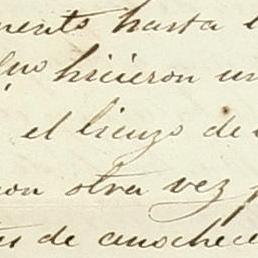 mento hasta l
hicieron un
el lienzo de
on otra vez
tes de anochece